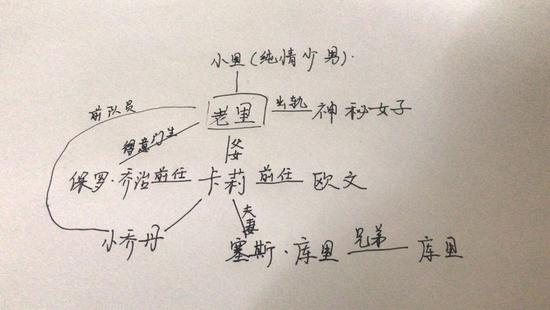 小里(纯情少男).
前队员
老里 出轨 神秘女子
得意门生
父女
保罗·乔治 前任 卡莉 前任 欧文
小乔丹
夫妻
塞斯·库里 兄弟 库里